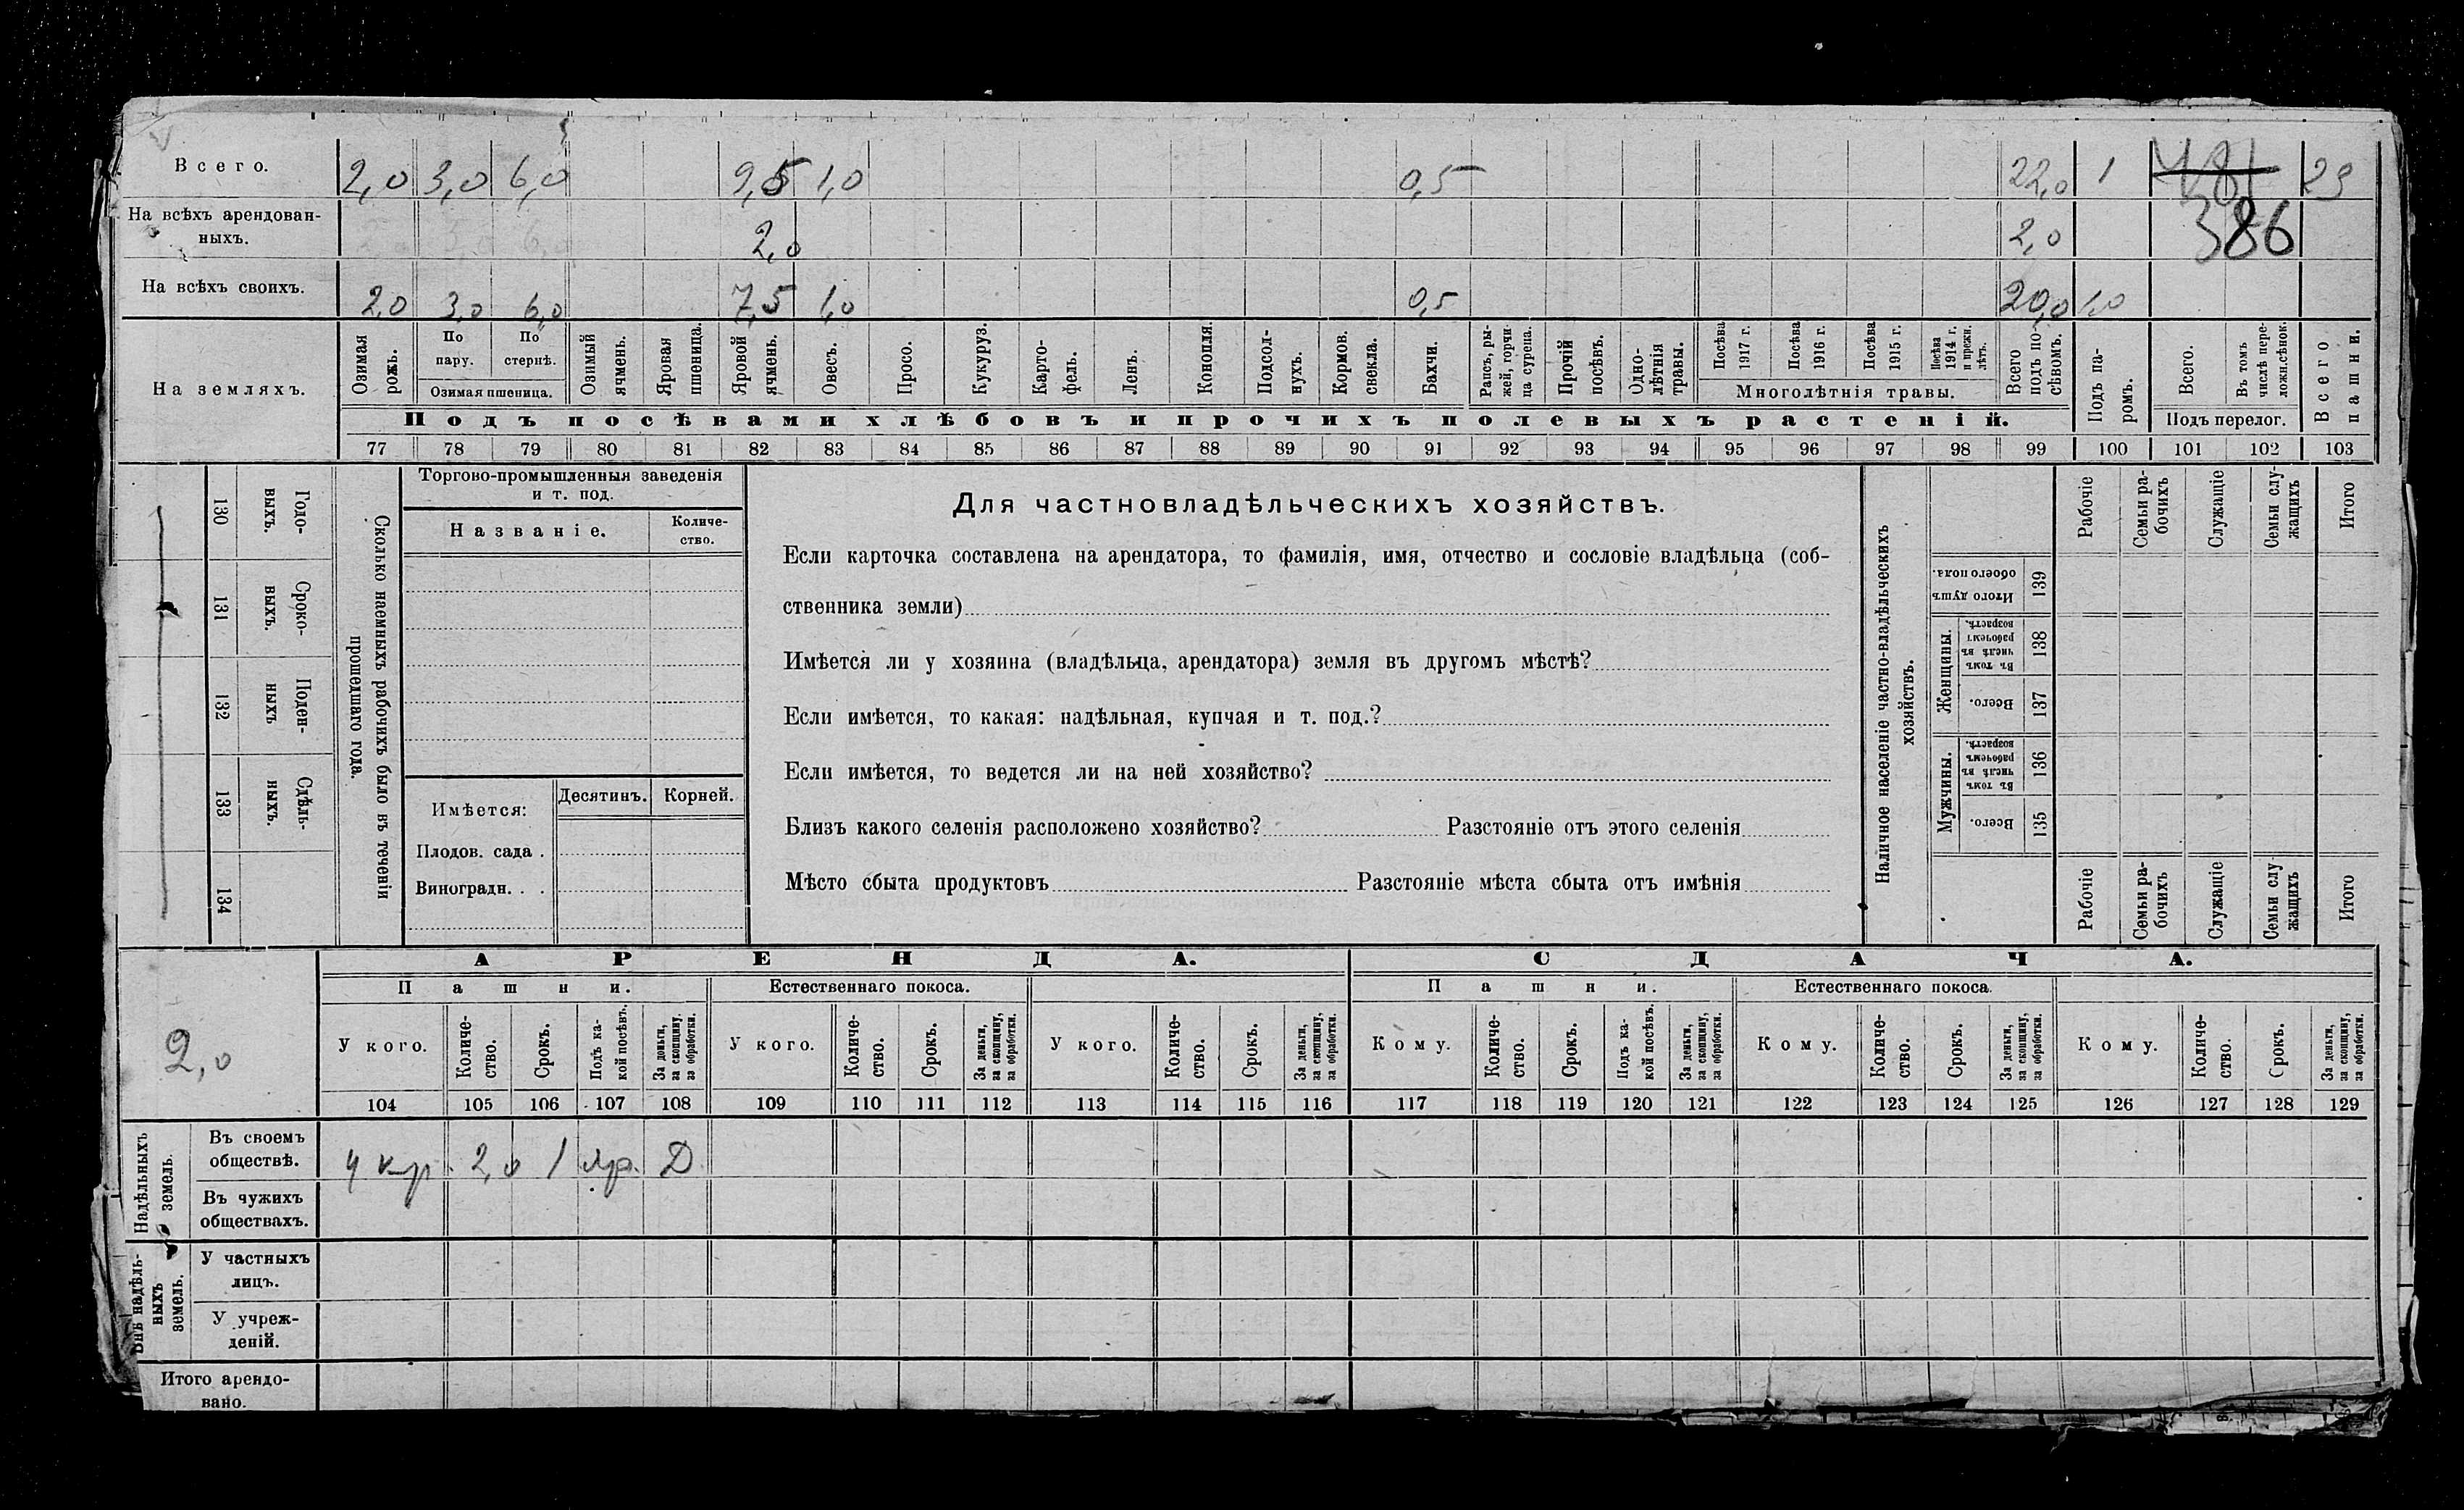 Всего. 2,0 3,0 6,0 9,5 1,0 0,5 22,0 1 23
На всѣхъ арендован-
ныхъ. 2,0 2,0 386
На всѣхъ своихъ. 2,0 3,0 6,0 7,5 1,0 0,5 20,0 1,0
На земляхъ.
Озимая рожь.
По пару.
По стернѣ.
Озимая пшеница.
Озимый ячмень.
Яровая пшеница.
Яровой ячмень.
Овесъ.
Просо.
Кукуруз.
Карто-
фель.
Ленъ.
Конопля.
Подсол-
нухъ.
Кормов.
свекла.
Бахчи.
Рапсъ, ры-
жей, горчи-
ца сурепа.
Прочій
посѣвъ.
Одно-
лѣтнія
травы.
Посѣва
1917 г.
Посѣва
1916 г.
Посѣва
1915 г.
Посѣва
1914 г.
и прежн.
лѣтъ.
Многолѣтнія травы.
Всего
подъ по-
сѣвомъ.
Подъ па-
ромъ.
Всего.
Въ томъ
числѣ пере-
ложн.сѣнок.
Подъ перелог.
Всего
пашни.
Подъ посѣвами хлѣбовъ и прочихъ полевыхъ растеній.
77 78 79 80 81 82 83 84 85 86 87 88 89 90 91 92 93 94 95 96 97 98 99 100 101 102 103
130
Годо-
выхъ.
131
Сроко-
выхъ.
132
Поден-
ныхъ
133
Сдѣль-
ныхъ.
134
Сколько наемныхъ рабочихъ было въ теченіи
прошедшаго года.
Торгово-промышленныя заведенія
и т. под.
Названіе.
Количе-
ство.
Имѣется:
Десятинъ.
Корней.
Плодов. сада .
Виноградн. . .
Для частновладѣльческихъ хозяйствъ.
Если карточка составлена на арендатора, то фамилія, имя, отчество и сословіе владѣльца (соб-
ственника земли)
Имѣется ли у хозяина (владѣльца, арендатора) земля въ другомъ мѣстѣ?
Если имѣется, то какая: надѣльная, купчая и т. под.?
Если имѣется, то ведется ли на ней хозяйство?
Близъ какого селенія расположено хозяйство? Разстояніе отъ этого селенія
Мѣсто сбыта продуктовъ Разстояніе мѣста сбыта отъ имѣнія
Наличное населеніе частно-владѣльческихъ
хозяйствъ.
Рабочіе
Семьи ра-
бочихъ
Служащіе
Семьи слу-
жащихъ
Итого
Итого душъ
обоего пола.
139
Женщины.
Въ томъ
числѣ въ
рабочемъ
возрастѣ.
138
Всего.
137
Мужчины.
Въ томъ
числѣ въ
рабочемъ
возрастѣ.
136
Всего.
135
Рабочіе
Семьи ра-
бочихъ
Служащіе
Семьи слу
жащихъ
Итого
АРЕНДА. СДАЧА.
Пашни. Естественнаго покоса. Пашни. Естественнаго покоса.
2,0
У кого.
Количе-
ство.
Срокъ.
Подъ ка-
кой посѣвъ.
За деньги,
за скопщину,
за обработки.
У кого.
Количе-
ство.
Срокъ.
За деньги,
за скопщину,
за обработки.
У кого.
Количе-
ство.
Срокъ.
За деньги,
за скопщину,
за обработки.
Кому.
Количе-
ство.
Срокъ.
Подъ ка-
кой посѣвъ.
За деньги,
за скопщину,
за обработки.
Кому.
Количе-
ство.
Срокъ.
За деньги,
за скопщину,
за обработки.
Кому.
Количе-
ство.
Срокъ.
За деньги,
за скопщину,
за обработки.
104 105 106 107 108 109 110 111 112 113 114 115 116 117 118 119 120 121 122 123 124 125 126 127 128 129
Надѣльныхъ
земель.
Въ своемъ
обществѣ. у кр. 2,0 1 яр. Д
Въ чужихъ
обществахъ.
Внѣ надѣль-
ныхъ
земель.
У частныхъ
лицъ.
У учреж-
деній.
Итого арендо-
вано.